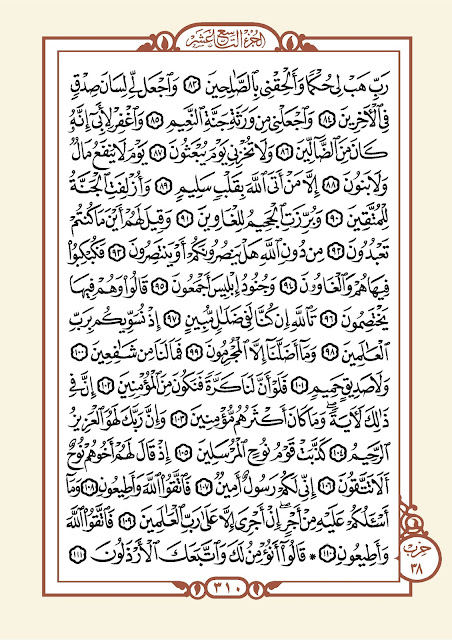 الجزء التاسع عشر
رَبِّ هَبْ لِي حُكْمًا وَأَلْحِقْنِي بِالصَّالِحِينَ ٨٣ وَاجْعَل لِّي لِسَانَ صِدْقٍ
فِي الْآخِرِينَ ٨٤ وَاجْعَلْنِي مِن وَرَثَةِ جَنَّةِ النَّعِيمِ ٨٥ وَاغْفِرْ لِأَبِي إِنَّهُ
كَانَ مِنَ الضَّالِّينَ ٨٦ وَلَا تُخْزِنِي يَوْمَ يُبْعَثُونَ ٨٧ يَوْمَ لَا يَنفَعُ مَالٌ
وَلَا بَنُونَ ٨٨ إِلَّا مَنْ أَتَى اللَّهَ بِقَلْبٍ سَلِيمٍ ٨٩ وَأُزْلِفَتِ الْجَنَّةُ
لِلْمُتَّقِينَ ٩٠ وَبُرِّزَتِ الْجَحِيمُ لِلْغَاوِينَ ٩١ وَقِيلَ لَهُمْ أَيْنَ مَا كُنتُمْ
تَعْبُدُونَ ٩٢ مِن دُونِ اللَّهِ هَلْ يَنصُرُونَكُمْ أَوْ يَنتَصِرُونَ ٩٣ فَكُبْكِبُوا
فِيهَا هُمْ وَالْغَاوُونَ ٩٤ وَجُنُودُ إِبْلِيسَ أَجْمَعُونَ ٩٥ قَالُوا وَهُمْ فِيهَا
يَخْتَصِمُونَ ٩٦ تَاللَّهِ إِن كُنَّا لَفِي ضَلَالٍ مُّبِينٍ ٩٧ إِذْ نُسَوِّيكُم بِرَبِّ
الْعَالَمِينَ ٩٨ وَمَا أَضَلَّنَا إِلَّا الْمُجْرِمُونَ ٩٩ فَمَا لَنَا مِن شَافِعِينَ ١٠٠
وَلَا صَدِيقٍ حَمِيمٍ ١٠١ فَلَوْ أَنَّ لَنَا كَرَّةً فَنَكُونَ مِنَ الْمُؤْمِنِينَ ١٠٢ إِنَّ فِي
ذَٰلِكَ لَآيَةً ۖ وَمَا كَانَ أَكْثَرُهُم مُّؤْمِنِينَ ١٠٣ وَإِنَّ رَبَّكَ لَهُوَ الْعَزِيزُ
الرَّحِيمُ ١٠٤ كَذَّبَتْ قَوْمُ نُوحٍ الْمُرْسَلِينَ ١٠٥ إِذْ قَالَ لَهُمْ أَخُوهُمْ نُوحٌ
أَلَا تَتَّقُونَ ١٠٦ إِنِّي لَكُمْ رَسُولٌ أَمِينٌ ١٠٧ فَاتَّقُوا اللَّهَ وَأَطِيعُونِ ١٠٨ وَمَا
أَسْأَلُكُمْ عَلَيْهِ مِنْ أَجْرٍ ۖ إِنْ أَجْرِيَ إِلَّا عَلَىٰ رَبِّ الْعَالَمِينَ ١٠٩ فَاتَّقُوا اللَّهَ
وَأَطِيعُونِ ١١٠ * قَالُوا أَنُؤْمِنُ لَكَ وَاتَّبَعَكَ الْأَرْذَلُونَ ١١١
حزب
٣٨
٣١٠